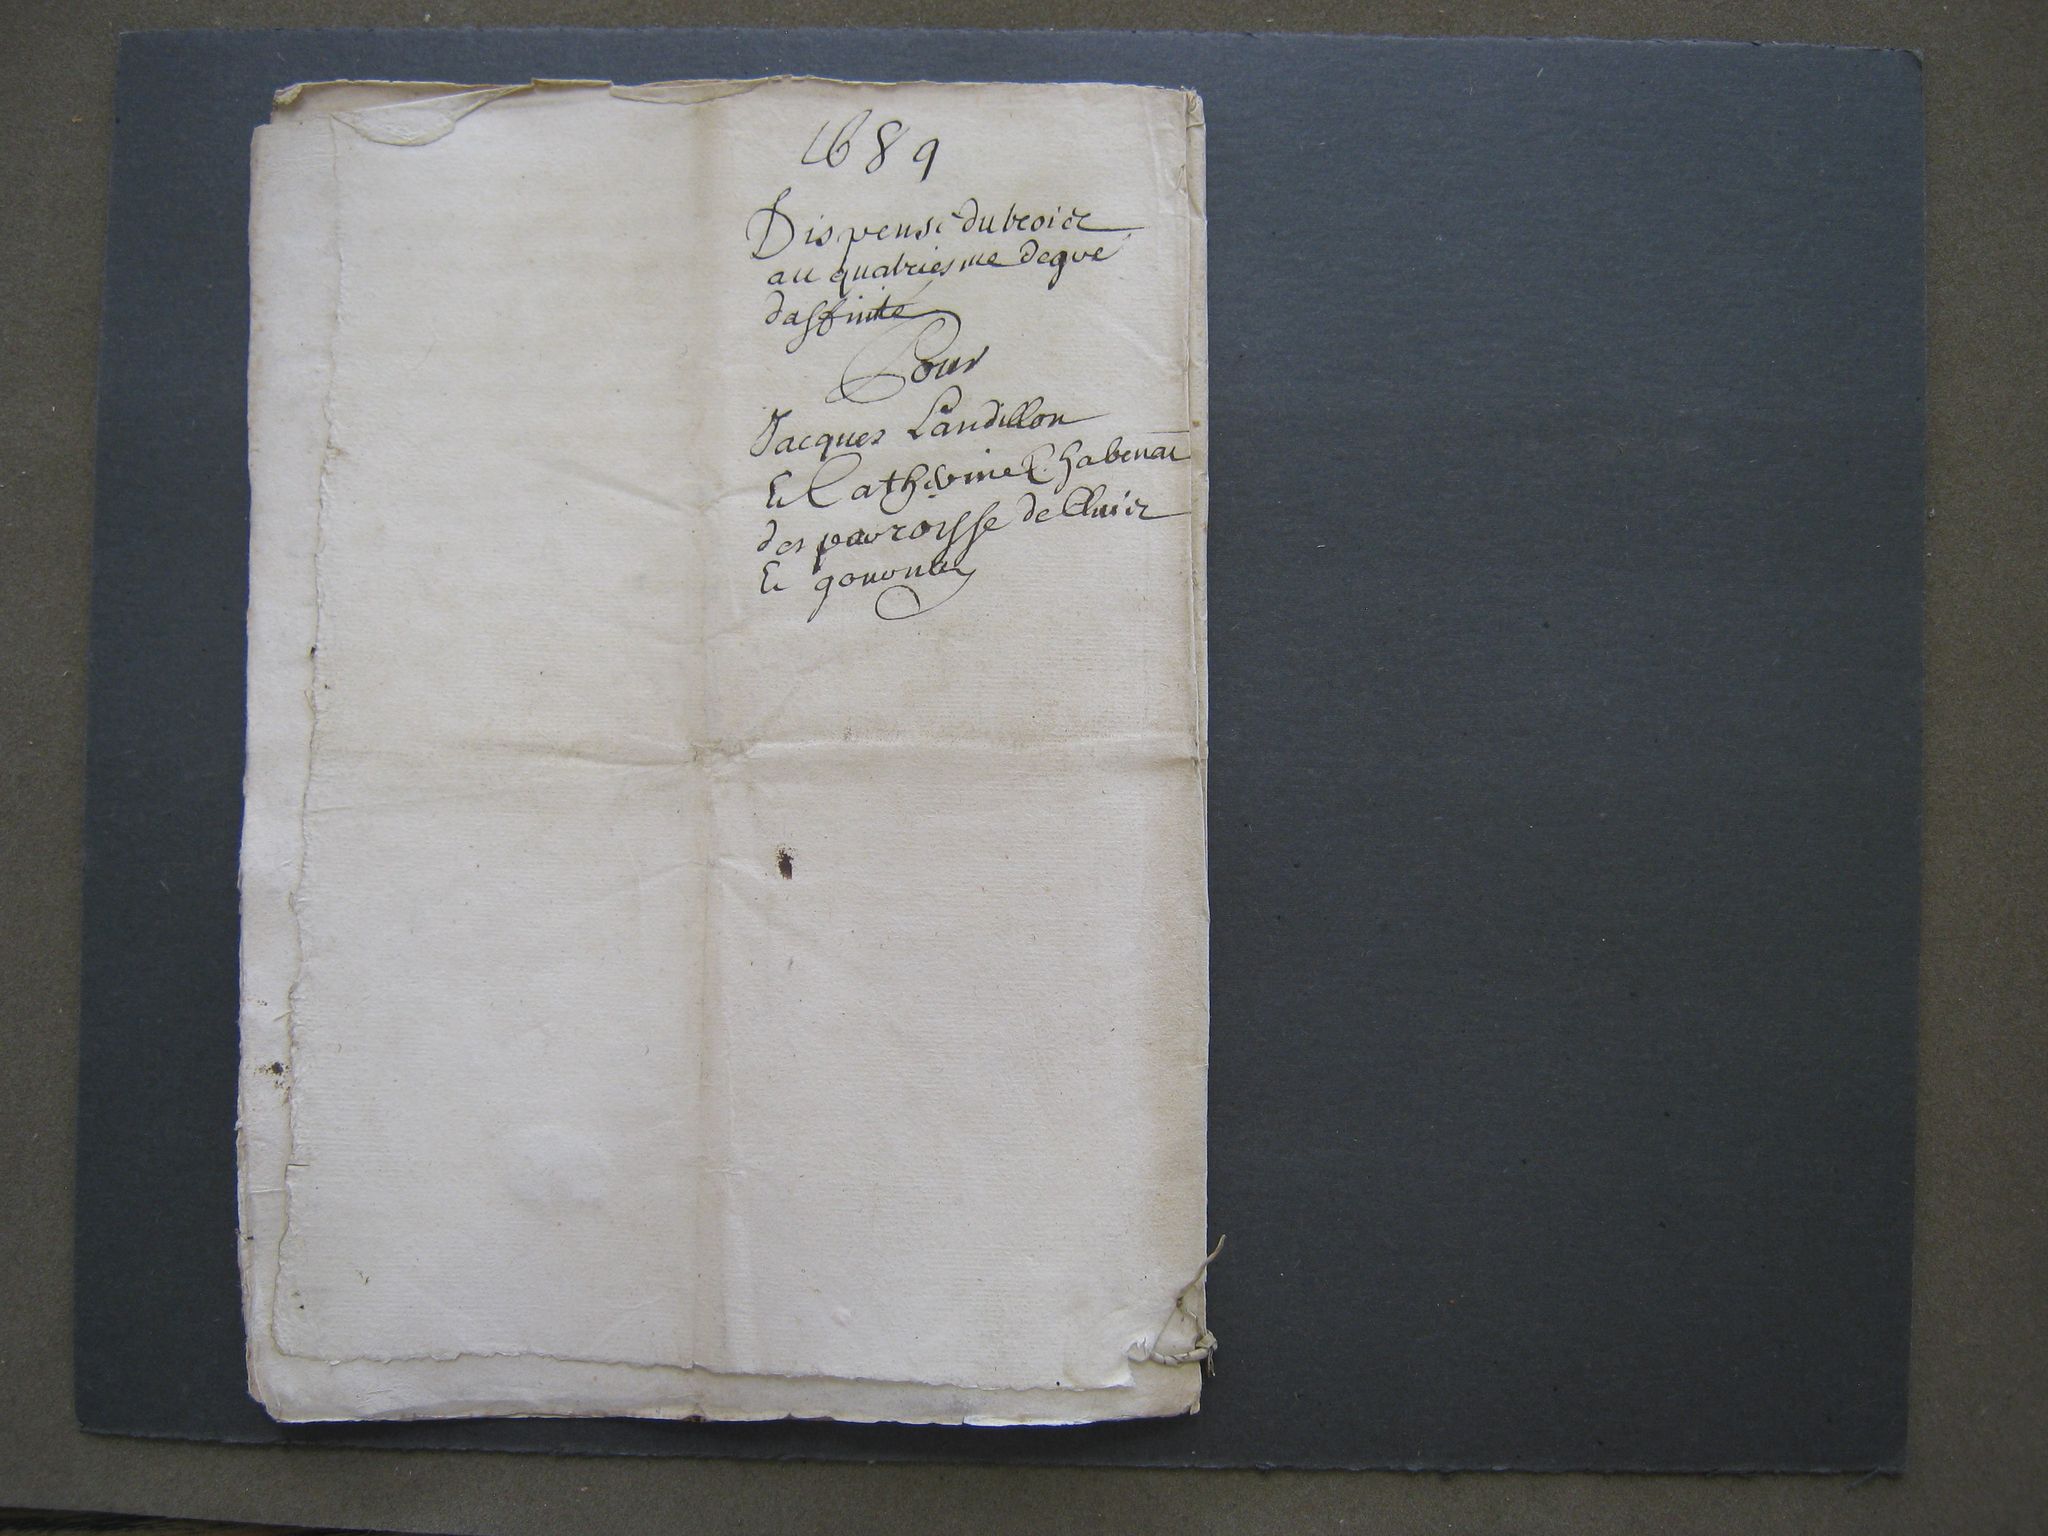 1689
Dispense du trois
au quatriesme degre
daffinite
Pour
Jacques Landillon
Et Catherine Chabenat
des parroysse de Cluis
Et gournay